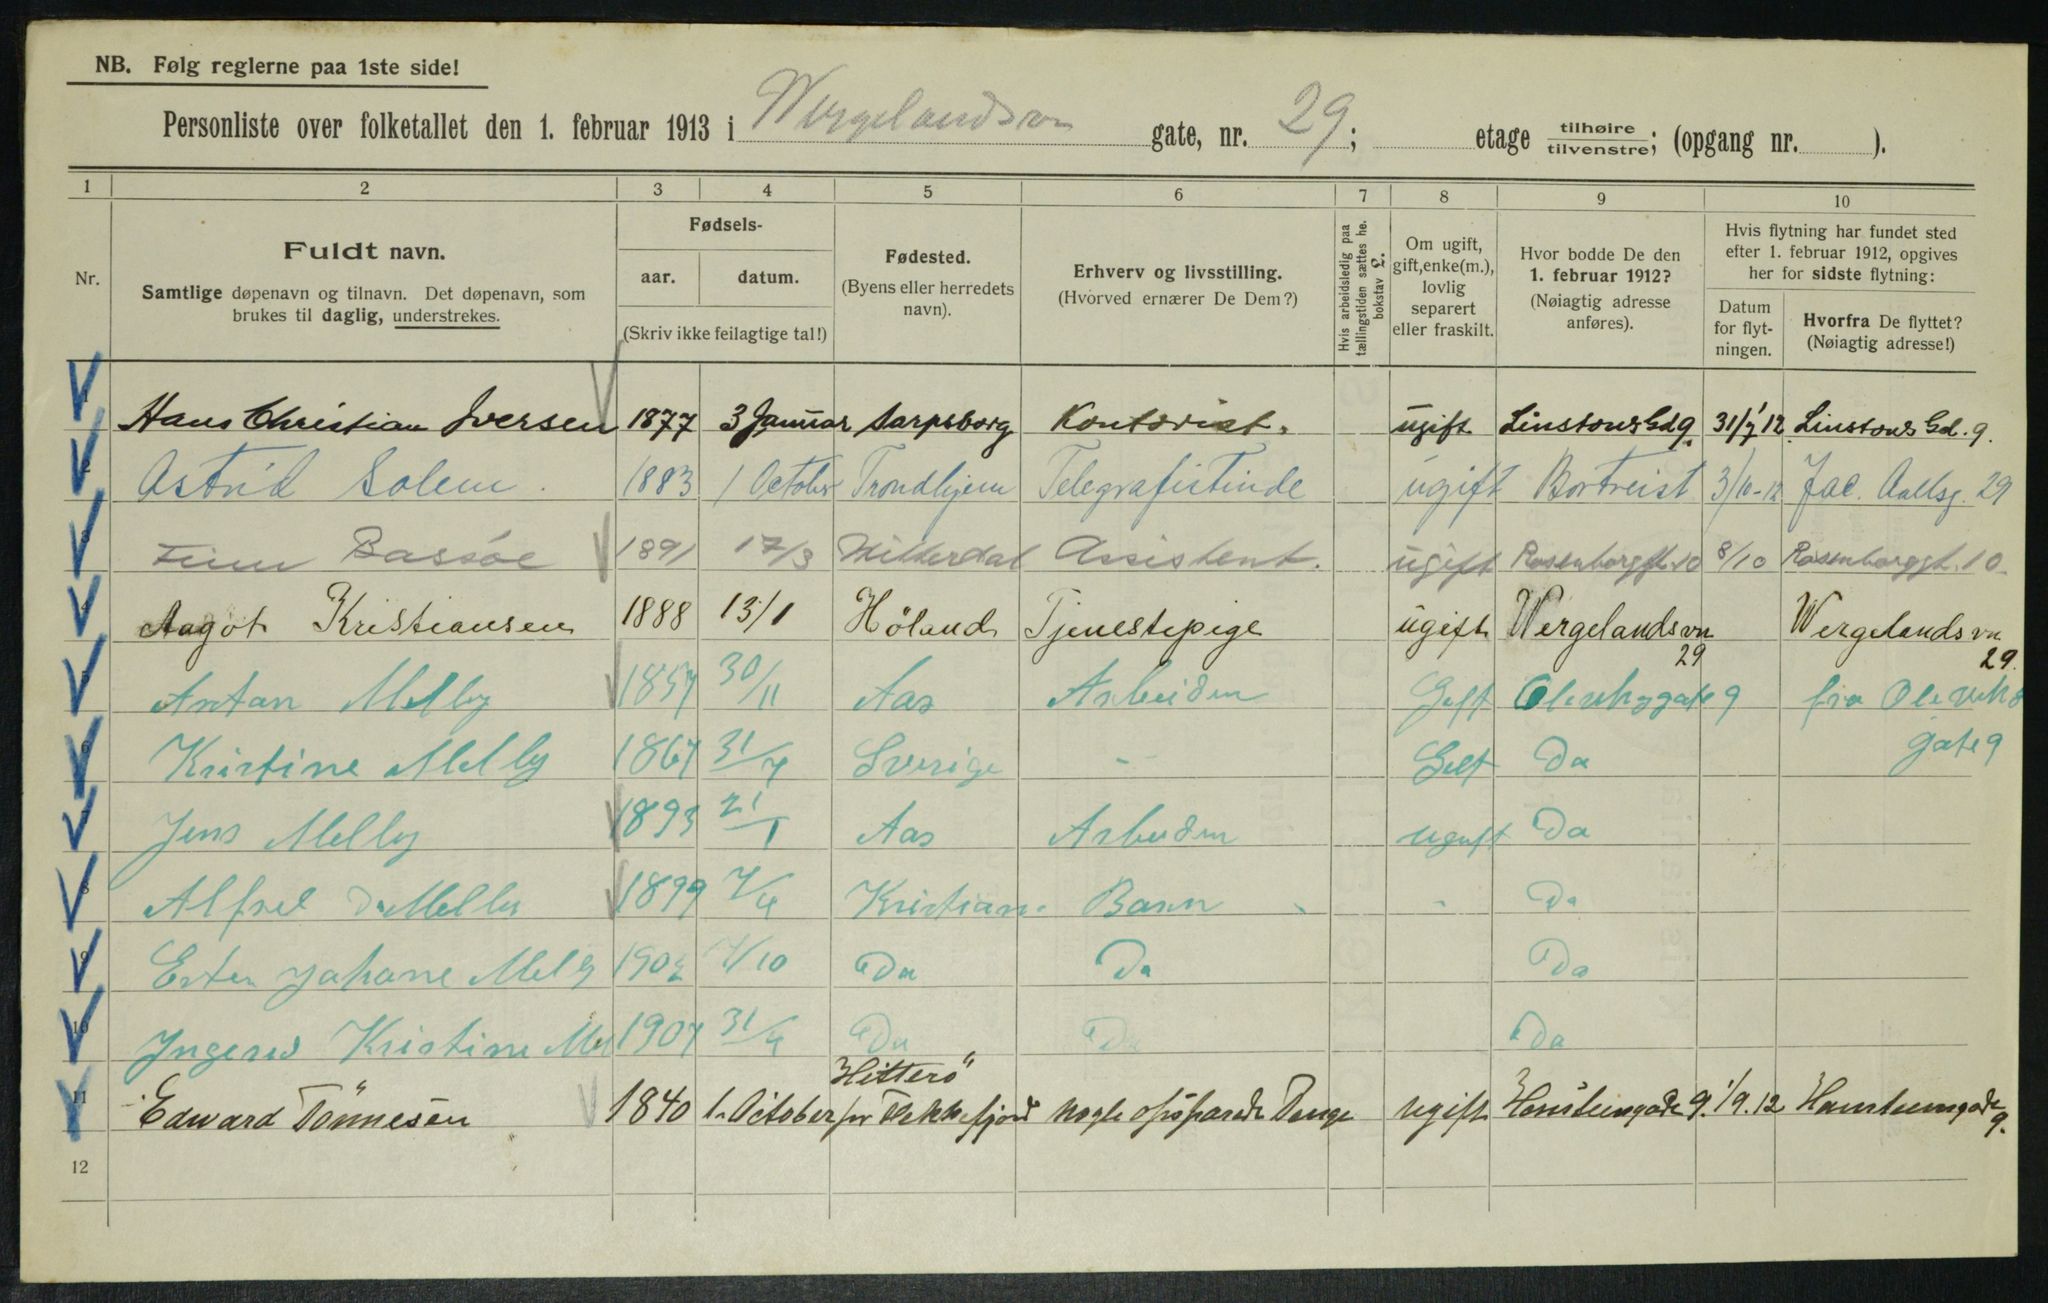 NB. Følg reglerne paa 1ste side!
Personliste over folketallet den 1. februar 1913 i Wergelandsvn gate, nr. 29; etage tilhøire tilvenstre; (opgang nr. ).
1 2 3 4 5 6 7 8 9 10
Nr.
Fuldt navn.
Samtlige døpenavn og tilnavn. Det døpenavn, som
brukes til daglig, understrekes.
Fødsels-
aar. datum.
(Skriv ikke feilagtige tal!)
Fødested.
(Byens eller herredets
navn).
Erhverv og livsstilling.
(Hvorved ernærer De Dem?)
Hvis arbeidsledig paa
tællingstiden sættes he.
bokstav L.
Om ugift,
gift, enke(m.),
lovlig
separert
eller fraskilt.
Hvor bodde De den
1. februar 1912?
(Nøiagtig adresse
anføres).
Hvis flytning har fundet sted
efter 1. februar 1912, opgives
her for sidste flytning:
Datum
for flyt-
ningen.
Hvorfra De flyttet?
(Nøiagtig adresse!)
1 Hans Christian Iversen 1877 3 Januar Sarpsborg Kontorist. ugift Linstows Gd 9. 31/7 12 Linstows Gd. 9.
2 Astrid Solem. 1883 1 October Trondhjem Telegrafistinde ugift Bortreist 3/10-12 Jac. Aallsg. 29
3 Finn Bassøe 1891 17/3 Hitterdal Assistent. ugift Rosenborggt. 10 8/10 Rosenborggt. 10
4 Aagot Kristiansen 1888 13/1 Höland Tjenestepige ugift Wergelandsvn 29 Wergelandsvn 29.
5 Antan Melby 1857 30/11 Aas Arbeider Gift Olevigsgate 9 fra Olevigs
gate 9
6 Kristine Melby 1867 31/7 Sverige - Gift Do
7 Jens Melby 1893 21/1 Aas Arbeider ugift Do
8 Alfred Melby 1899 7/4 Kristian. Barn - Do
9 Ester Johane Melby 1902 7/10 Do Do Do
10 Ingerid Kristine Mel 1907 31/4 Do Do Do
11 Edward Tönnesen 1840 1. October Hitterö pr Flekkefjord Nogle opsparede Penge ugift 9. 1/9. 12 9.
12